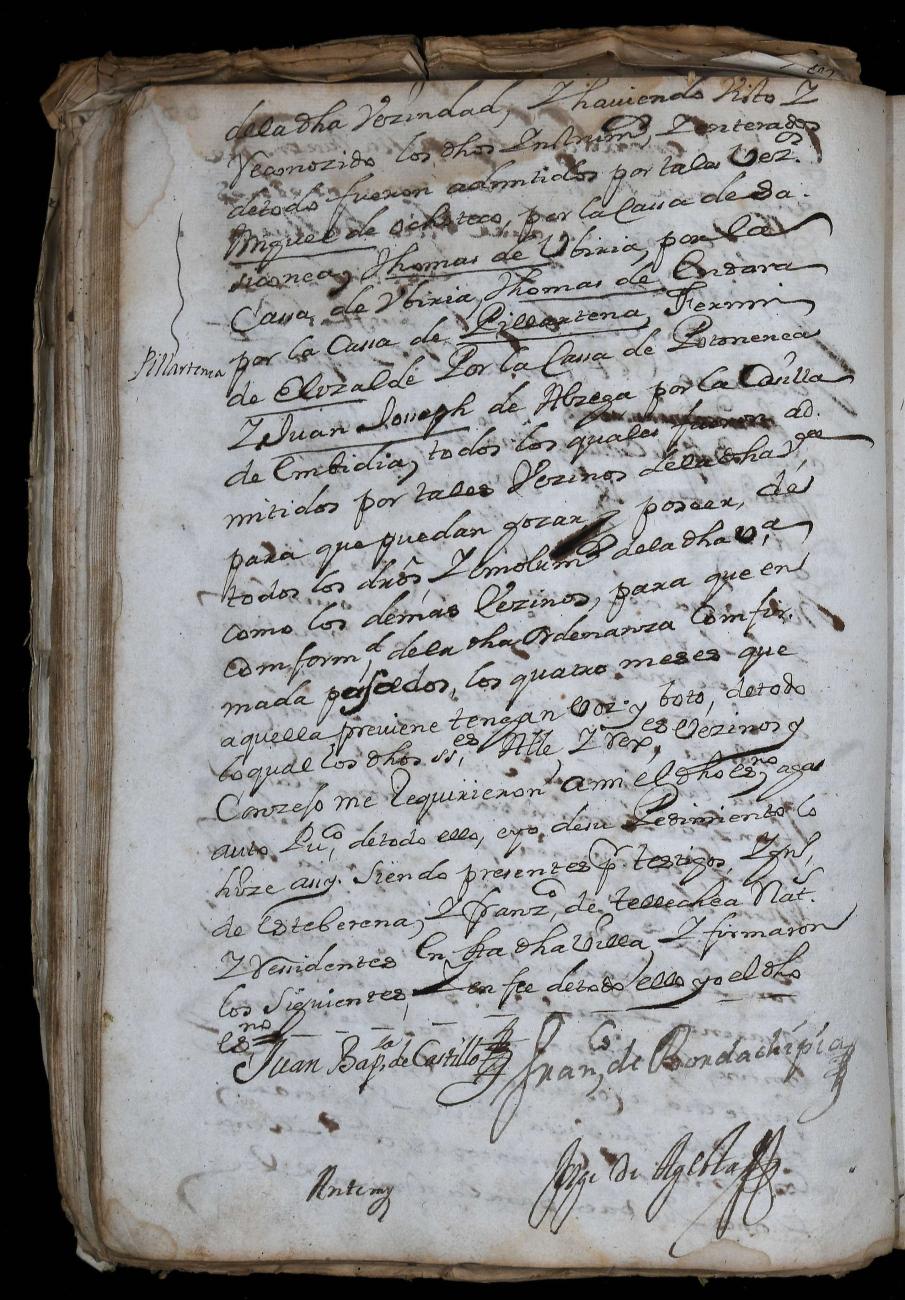 dela dha Vezindad, Z haviendo Visto Z
Reconozido los dhos Instrum.s Z enterados
detodo fueron admitidos por tales Vez.os
Miguel de ochoteco, por la Cassa de
Thomas de Ybiria, por la
Cassa, de Ybiria, Thomas de Endara
por la Cassa de Pillartena, Fermin
Pillartena
de Elizalde Por la Cassa de Petonenea
Z Juan Joseph de Abzega por la Casilla
de Embidia, todos los quales fueron ad.
mitidos por tales Vezinos dela dha V.a
para que puedan gozar y poseer, de
todos los drõs, Z emolum.s dela dha V.a
como los demas Vezinos, para que en
comform.d dela dha Ordenanza Comfir.
mada pasados, los quatro meses que
aquella previene tengan voz y boto, detodo
lo qual los dhos ss.es Alle, Z rex.es Vezinos y
Conzejo me Requirieron a mi el dho es.no aga
auto Pu.co, detodo ello, e yo, de su Pedimiento lo
hize assi. Siendo presentes p.r testigos,
de Esteberena, Z Franz.co de Tellechea Nat.s
Z Residentes En esta dha Villa Z firmaron
los Siguientes, Z en fee de todo ello yo el dho
es.no =
Juan Bap.ta de Castillo
Fran.co de Bordachipia
Antemy